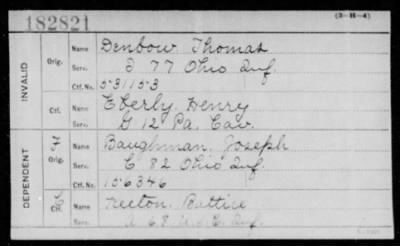 182821
(3-H-4)
INVALID
Orig.
Name Denbow Thomas
Serv. I 77 Ohio Inf.
Ctf. No. 531153
Ctf.
Name Eberly, Henry
Serv. G 12 Pa. Cav.
DEPENDENT
Orig.
Name Baughman, Joseph
Serv. C 82 Ohio Inf.
Ctf. No. 156346
Name
Serv. A 68 Inf.